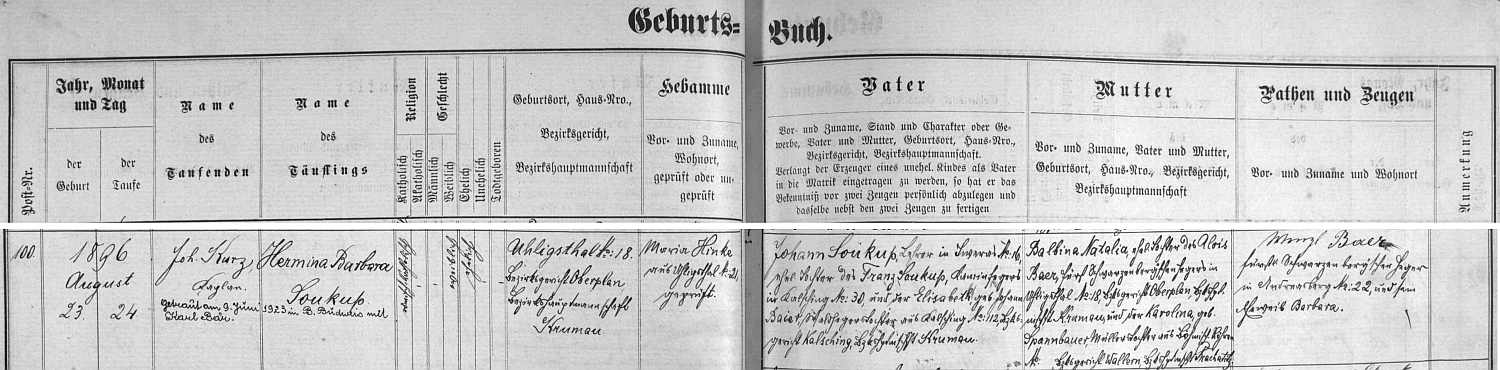 Geburts=
Buch.
Post-Nr.
Jahr, Monat
und Tag
der
Geburt
der
Taufe
Name
des
Taufenden
Name
des
Täuflings
Religion
Katholisch
Akatholisch
Geschlecht
Männlich
Weiblich
Ehelich
Unehelich
Todtgeboren
Geburtsort, Haus-Nro.,
Bezirksgericht,
Bezirkshauptmannschaft
Hebamme
Vor- und Zuname,
Wohnort,
geprüft oder un-
geprüft
Vater
Vor- und Zuname, Stand und Charakter oder Ge-
werbe, Vater und Mutter, Geburtsort, Haus-Nro.,
Bezirksgericht, Bezirkshauptmannschaft.
Verlangt der Erzeuger eines unehel. Kindes als Vater
in die Matrik eingetragen zu werden, so hat er das
Bekenntniß vor zwei Zeugen persönlich abzulegen und
dasselbe nebst den zwei Zeugen zu fertigen
Mutter
Vor- und Zuname, Vater und Mutter,
Geburtsort, Haus-Nro., Bezirksgericht,
Bezirkshauptmannschaft
Pathen und Zeugen
Vor- und Zuname und Wohnort
Anmerkung
100.
1896
August
23. 24
Joh. Kurz,
Kaplan.
Hermina Barbara
Soukup
getraut am 9. Juni 1923 in B. Budweis mit
Karl Bau.
katholisch
weiblich
ehelich
Uhligsthal No: 18.
Bezirksgericht Oberplan
Bezirkshauptmannschaft
Krumau
Maria Hinke
aus Uhligsthal No: 21,
geprüft.
Johann Soukup, Lehrer in No: 16,
ehel. des Franz Soukup,
in Kalsching No: 30, und der Elisabeth geb. Johann
aus Kalsching No: 112, Bzks-
gericht Kalsching, Krumau.
Balbina Natalia, ehel. Tochter des Alois
Baer, Fürst Schwarzenbergischen Hegers in
Uhligsthal No: 18, Bzksgericht Oberplan,
Krumau, und der Karolina, geb.
Spannbauer, Müllerstochter aus Böhmisch Röhren
No: Bzksgericht Wallern, Prachatitz
Wenzl Baer
fürstl. Schwarzenbergischer Heger
in Andreasberg No: 22, und sein
Eheweib Barbara.